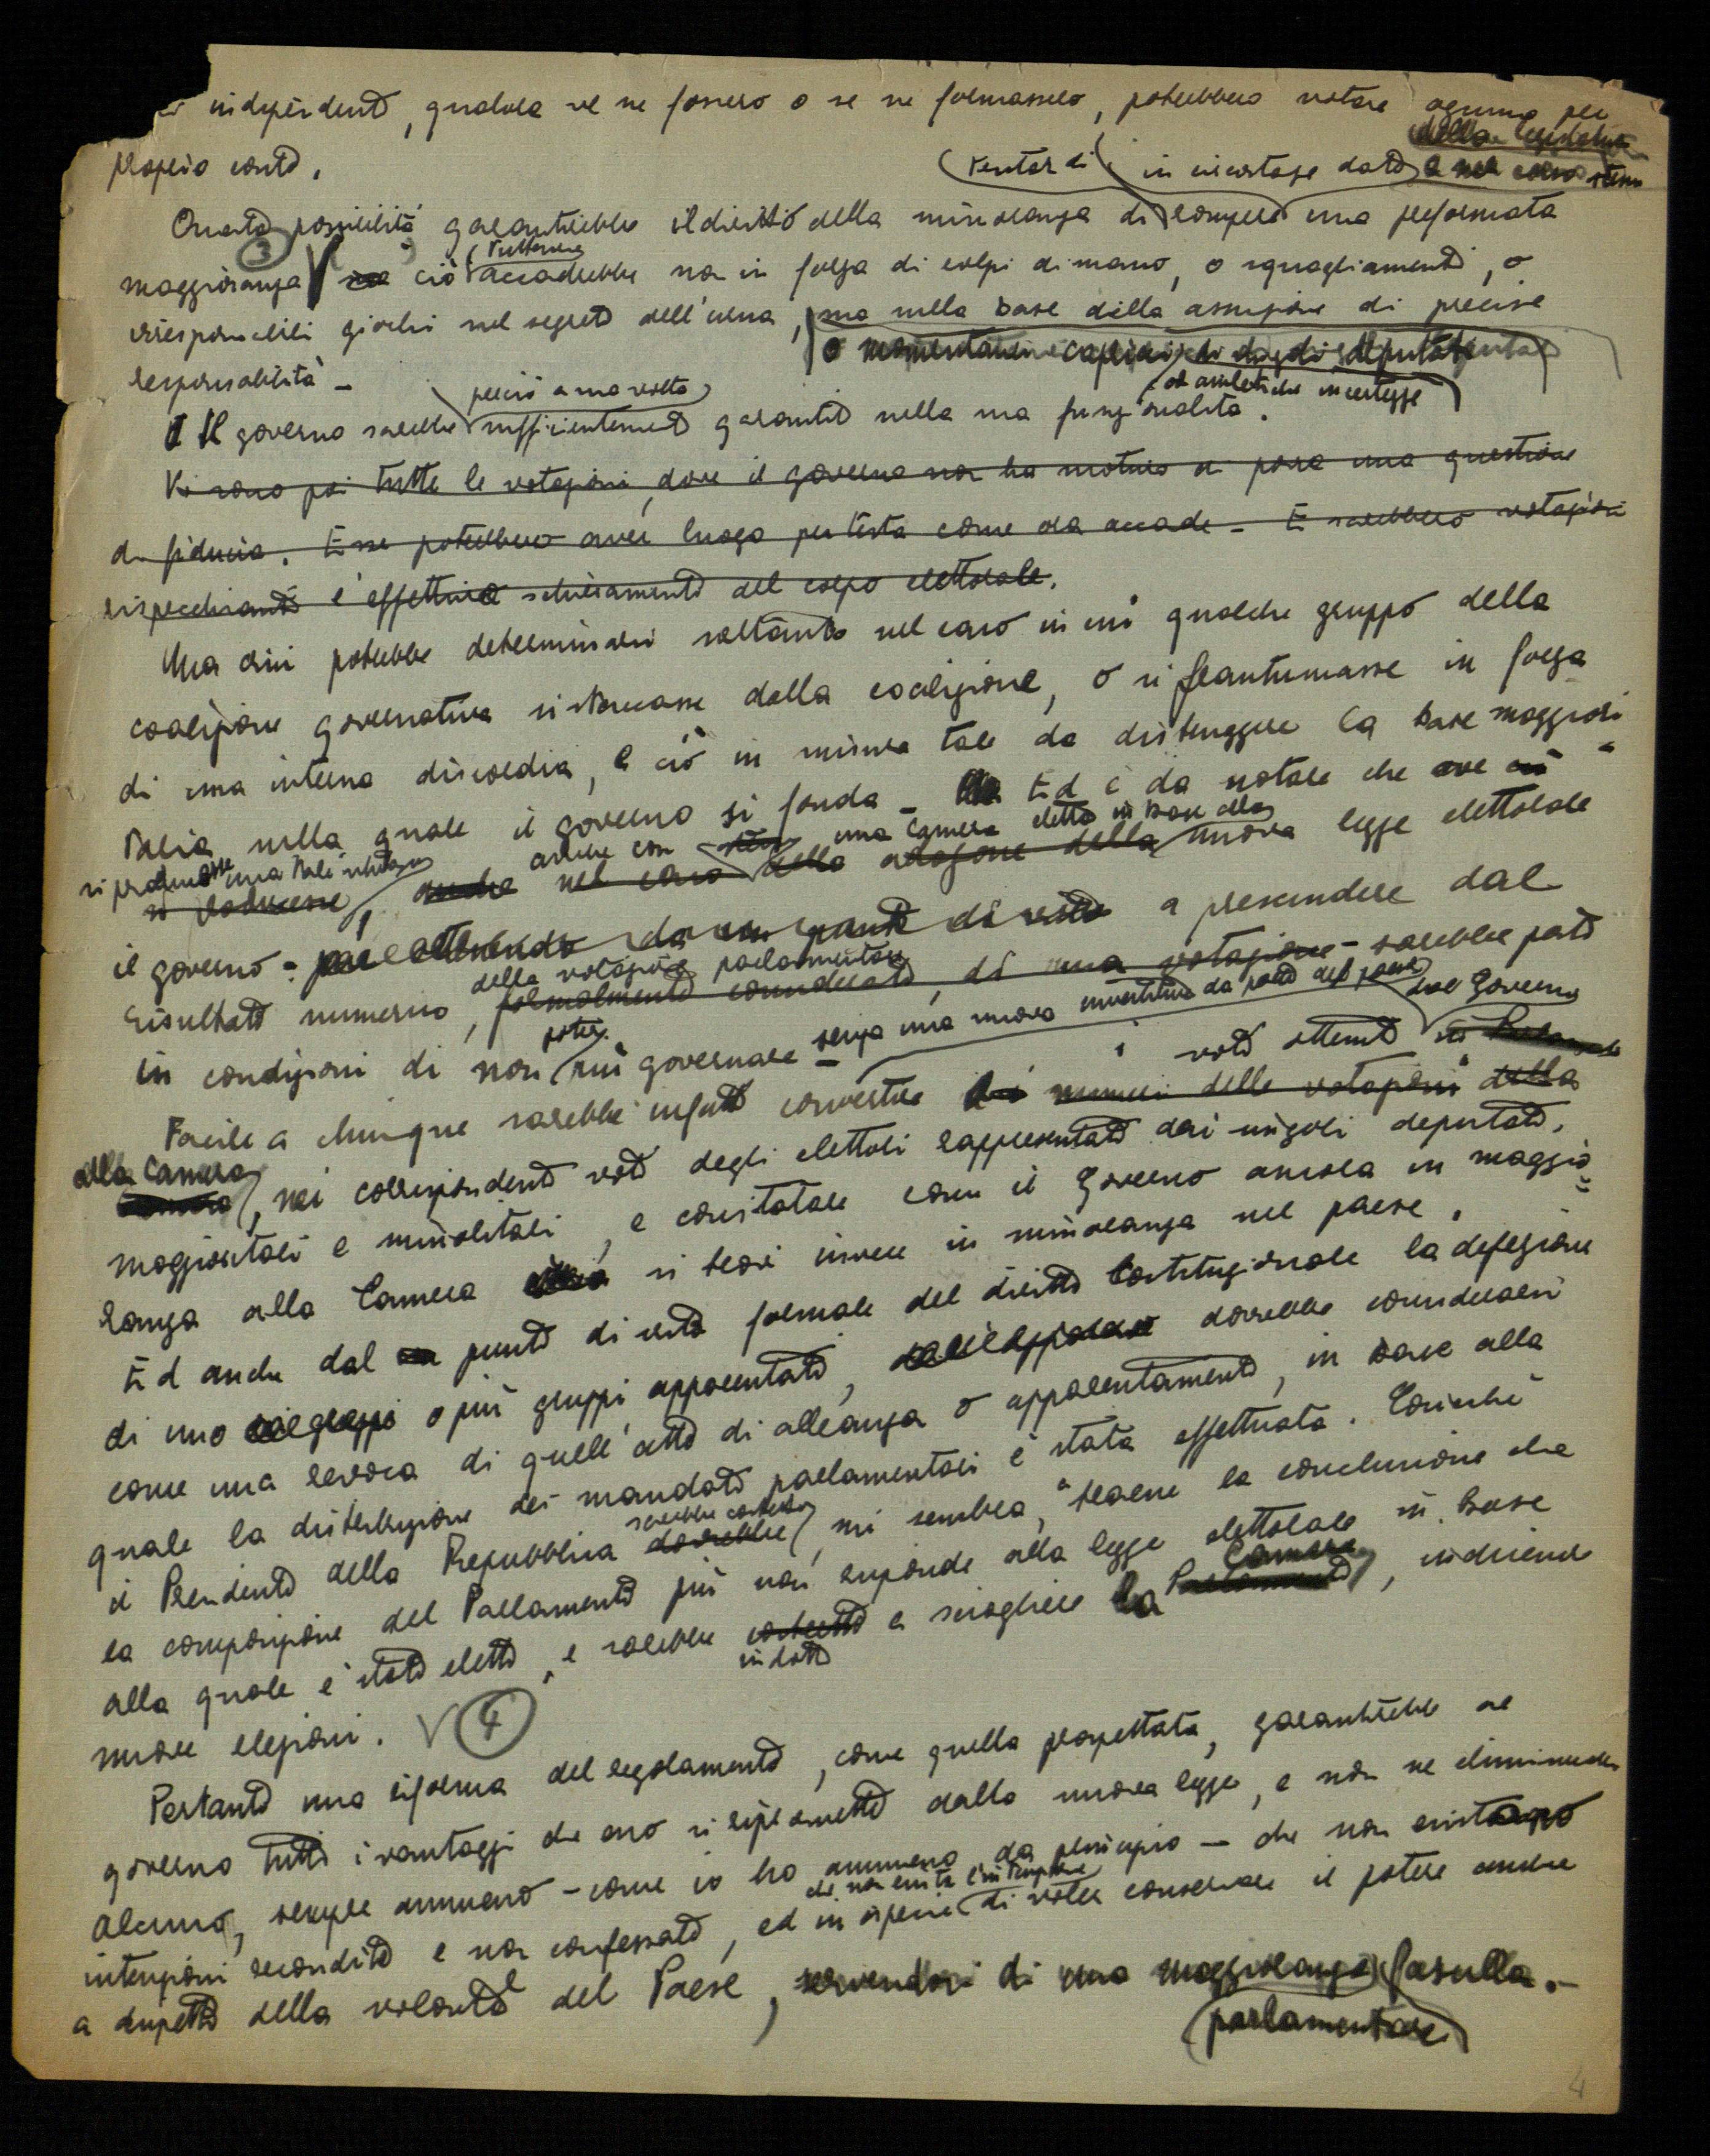 indipendenti, qualora ve ne fossero o se ne formassero, potrebbero votare ognuno per
della legislatura
proprio conto.
tentar di in incertezze dato e nel corso stesso
Questa possibilità garantirebbe il diritto della minoranza di rompere una preformata
3
tuttavia
maggioranza ma ciò accadrebbe non in forza di colpi di mano, o squagliamenti, o
irresponsabili giochi nel segreto dell'urna, ma sulla base della assunzione di precise
o momentanei capricci di deputati
responsabilità -
perciò a sua volta
od amletiche incertezze
Il governo sarebbe sufficientemente garantito nella sua funzionalità.
Vi sono poi tutte le votazioni, dove il governo non ha motivo di porre una questione
di fiducia. Esse potrebbero aver luogo per testa come ora accade - E sarebbero votazioni
rispecchianti l'effettivo schieramento del corpo elettorale.
Una crisi potrebbe determinarsi soltanto nel caso in cui qualche gruppo della
coalizione governativa si staccasse dalla coalizione, o si frantumasse in forza
di una interna discordia, e ciò in misura tale da distruggere la base maggiori-
taria sulla quale il governo si fonda - Ed è da notare che ove ciò
si producesse una tale situazione
anche con una Camera eletta in base alla
si producesse, anche nel caso della adozione della nuova legge elettorale
il governo - a prescindere dal
della votazione parlamentare
risultato numerico, formalmente considerato, di una votazione - sarebbe posto
poter senza una nuova investitura da parte del paese
in condizioni di non più governare -
dal Governo
Facile a chiunque sarebbe infatti convertire i numeri delle votazioni della voti ottenuti
alla Camera
nei corrispondenti voti degli elettori rappresentati dai singoli deputati,
maggioritari e minoritari, e constatare come il Governo ancora in maggio-
ranza alla Camera si trovi invece in minoranza nel paese.
Ed anche dal punto di vista formale del diritto Costituzionale la defezione
di uno o più gruppi apparentati, dovrebbe considerarsi
come una revoca di quell'atto di alleanza o apparentamento, in base alla
quale la distribuzione dei mandati parlamentari è stata effettuata. Cosicché
sarebbe costretto
il Presidente della Repubblica dovrebbe, mi sembra, trarne la conclusione che
la composizione del Parlamento più non risponde alla legge elettorale in base
Camera
alla quale è stato eletto, e sarebbe costretto a sciogliere la Parlamento, indicendo
indotto
nuove elezioni. 4
Pertanto una riforma del regolamento, come quella prospettata, garantirebbe al
governo tutti i vantaggi che esso si ripromette dalla nuova legge, e non ne eliminerebbe
alcuno, sempre ammesso - come io ho ammesso da principio - che non esistano
che non esista l'intenzione
intenzioni recondite e non confessate, ed in specie di voler conservare il potere anche
a dispetto della volontà del Paese, servendosi di una maggioranza fasulla. -
parlamentare
4